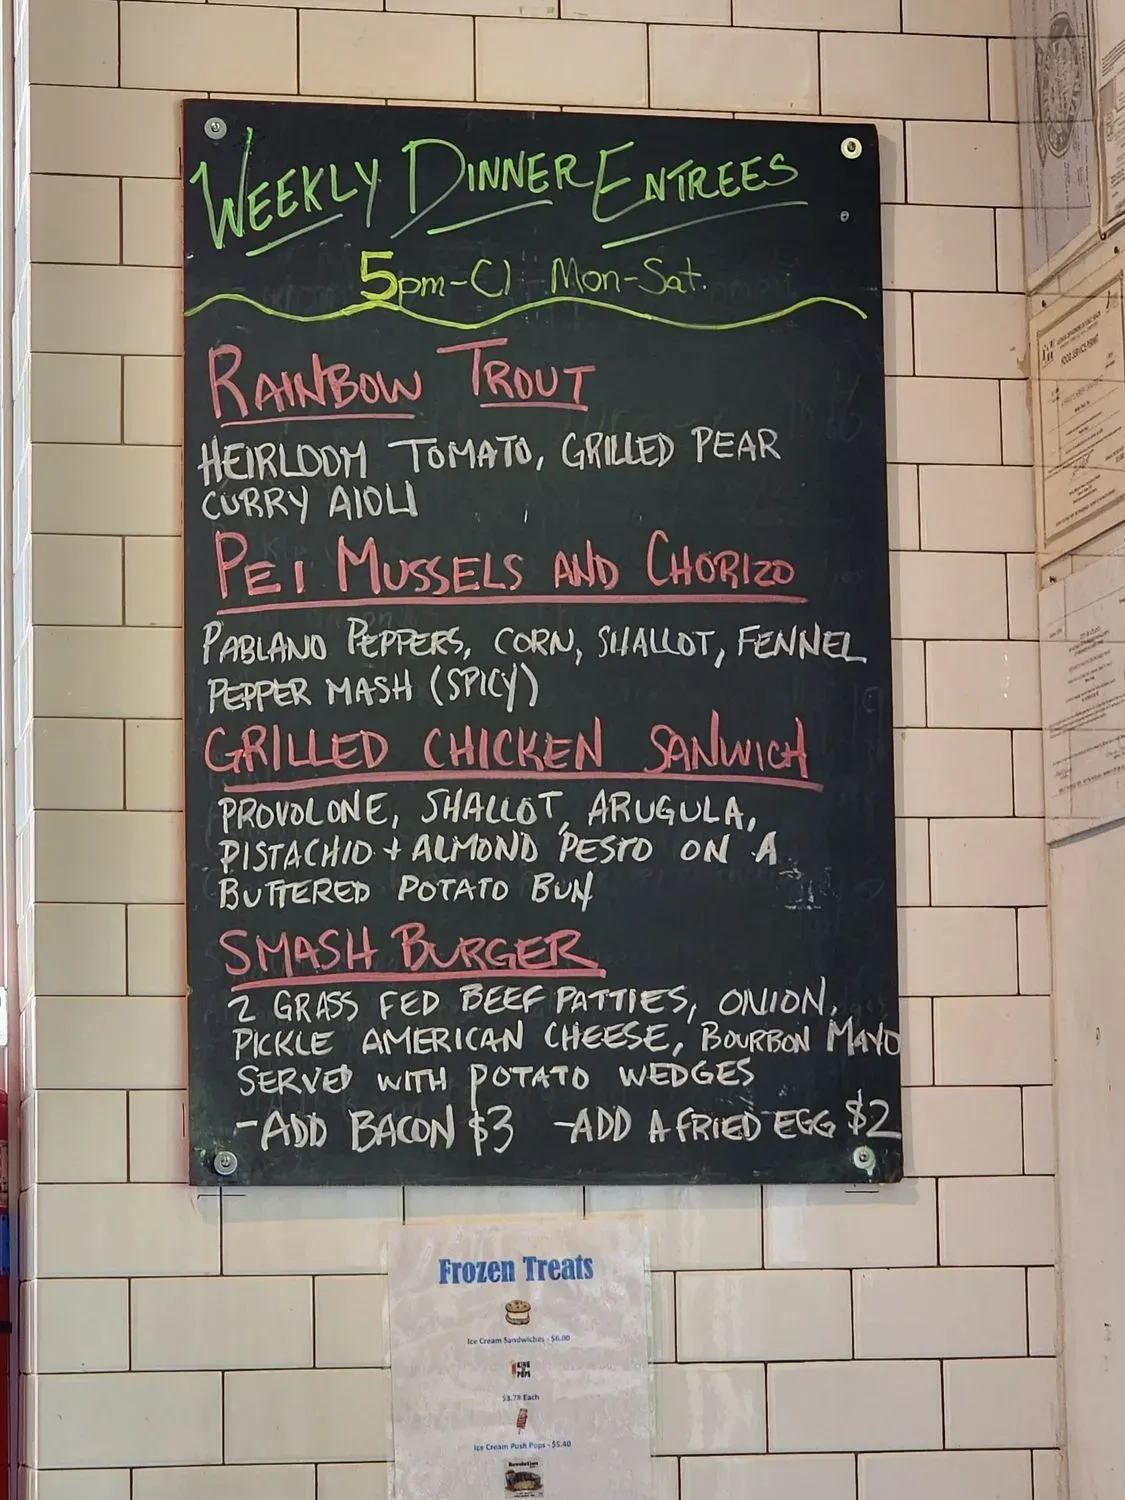 WEEKLY DINNER ENTREES
5pm-Cl Mon-Sat.
RAINBOW TROUT
HEIRLOOM TOMATO, GRILLED PEAR
CURRY AIOLI
PEI MUSSELS AND CHORIZO
PABLANO PEPPERS, CORN, SHALLOT, FENNEL
PEPPER MASH (SPICY)
GRILLED CHICKEN SANWICH
PROVOLONE, SHALLOT, ARUGULA,
PISTACHIO + ALMOND PESTO ON A
BUTTERED POTATO BUN
SMASH BURGER
2 GRASS FED BEEF PATTIES, ONION,
PICKLE AMERICAN CHEESE, BOURBON MAYO
SERVED WITH POTATO WEDGES
-ADD BACON $3 -ADD A FRIED EGG $2
Frozen Treats
Ice Cream Sandwiches - $6.00
KING OF POPS
$3.78 Each
Ice Cream Push Pops - $5.40
Revolution
FOOD SERVICE PERMIT